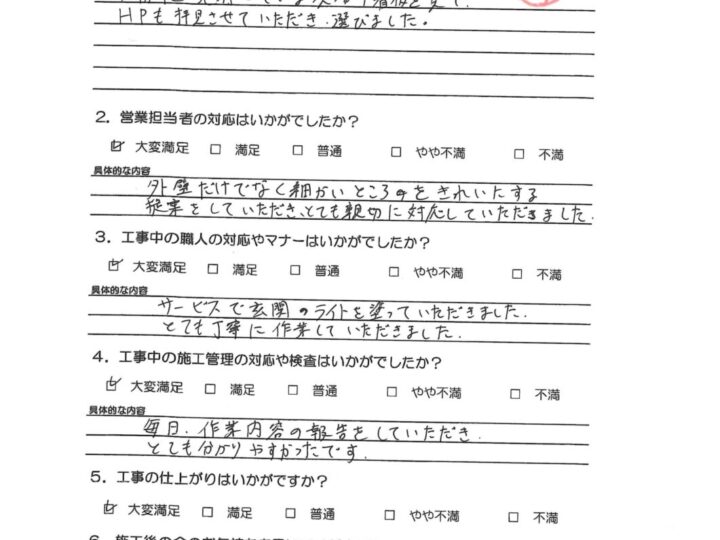 HPも拝見させていただき、選びました。
2. 営業担当者の対応はいかがでしたか?
☑ 大変満足 □ 満足 □ 普通 □ やや不満 □ 不満
具体的な内容
外壁だけでなく細かいところをきれいにする
提案をしていただき、とても親切に対応していただきました。
3. 工事中の職人の対応やマナーはいかがでしたか?
☑ 大変満足 □ 満足 □ 普通 □ やや不満 □ 不満
具体的な内容
サービスで玄関のライトを塗っていただきました。
とても丁寧に作業していただきました。
4. 工事中の施工管理の対応や検査はいかがでしたか?
☑ 大変満足 □ 満足 □ 普通 □ やや不満 □ 不満
具体的な内容
毎日、作業内容の報告をしていただき、
とても分かりやすかったです。
5. 工事の仕上がりはいかがですか?
☑ 大変満足 □ 満足 □ 普通 □ やや不満 □ 不満